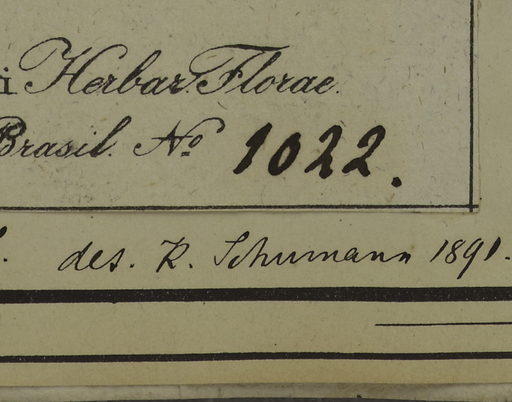 i Herbar. Florae
Brasil. No 1022.
des. K. Schumann 1891.